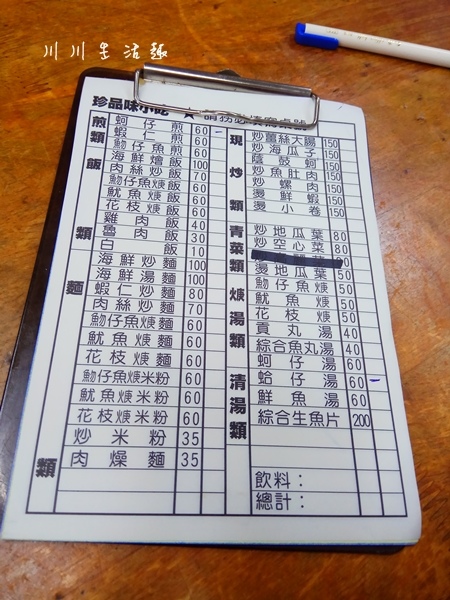 川川生活趣
珍品味小吃 ★ 請務必填寫桌號
煎類
蚵仔煎 60
蝦仁煎 60
魩仔魚煎 60
飯類
海鮮燴飯 100
肉絲炒飯 70
魩仔魚焿飯 60
魷魚焿飯 60
花枝焿飯 60
雞肉飯 40
魯肉飯 30
白飯 10
麵類
海鮮炒麵 100
海鮮湯麵 100
蝦仁炒麵 80
肉絲炒麵 70
魩仔魚焿麵 60
魷魚焿麵 60
花枝焿麵 60
魩仔魚焿米粉 60
魷魚焿米粉 60
花枝焿米粉 60
炒米粉 35
肉燥麵 35
現炒類
炒薑絲大腸 150
炒海瓜子 150
蔭鼓蚵 150
炒魚肚肉 150
炒螺肉 150
燙鮮蝦 150
燙小卷 150
青菜類
炒地瓜葉 80
炒空心菜 80
燙地瓜葉 50
焿湯類
魩仔魚焿 50
魷魚焿 50
花枝焿 50
清湯類
貢丸湯 40
綜合魚丸湯 40
蚵仔湯 60
蛤仔湯 60
鮮魚湯 60
綜合生魚片 200
飲料：
總計：